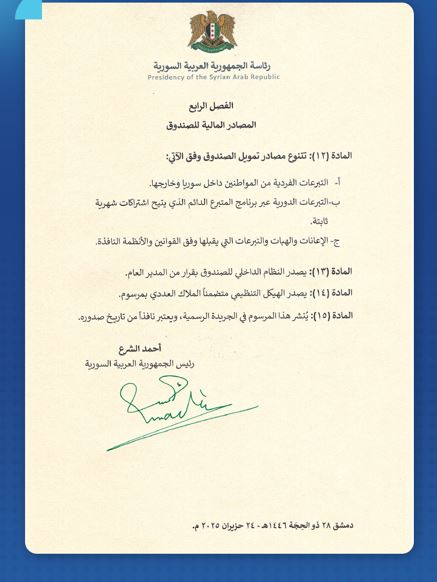 رئاسة الجمهورية العربية السورية
Presidency of the Syrian Arab Republic
الفصل الرابع
المصادر المالية للصندوق
المادة (١٢): تتنوع مصادر تمويل الصندوق وفق الآتي:
أ- التبرعات الفردية من المواطنين داخل سوريا وخارجها.
ب-التبرعات الدورية عبر برنامج المتبرع الدائم الذي يتيح اشتراكات شهرية
ثابتة.
ج- الإعانات والهبات والتبرعات التي يقبلها وفق القوانين والأنظمة النافذة.
المادة (١٣): يصدر النظام الداخلي للصندوق بقرار من المدير العام.
المادة (١٤): يصدر الهيكل التنظيمي متضمناً الملاك العددي بمرسوم.
المادة (١٥): يُنشر هذا المرسوم في الجريدة الرسمية، ويعتبر نافذاً من تاريخ صدوره.
أحمد الشرع
رئيس الجمهورية العربية السورية
دمشق ٢٨ ذو الحِجّة ١٤٤٦هـ - ٢٤ حزيران ٢٠٢٥ م.